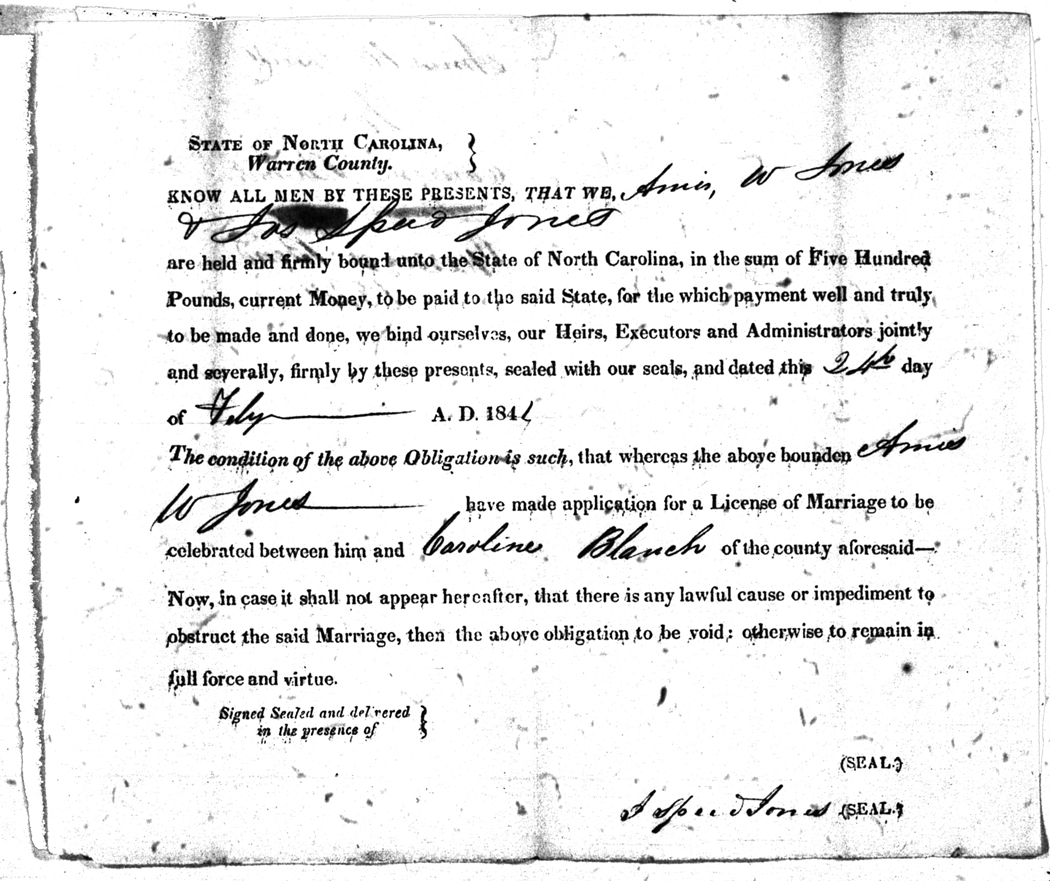 STATE OF NORTH CAROLINA, }
Warren County.
KNOW ALL MEN BY THESE PRESENTS, THAT WE, Amis, W Jones
& Jos Speed Jones
are held and firmly bound unto the State of North Carolina, in the sum of Five Hundred
Pounds, current Money, to be paid to the said State, for the which payment well and truly
to be made and done, we bind ourselves, our Heirs, Executors and Administrators jointly
and severally, firmly by these presents, sealed with our seals, and dated this 24th day
of Feby A. D. 1841
The condition of the above Obligation is such, that whereas the above bounden Amies
W Jones have made application for a License of Marriage to be
celebrated between him and Caroline Blanch of the county aforesaid—
Now, in case it shall not appear hereafter, that there is any lawful cause or impediment to
obstruct the said Marriage, then the above obligation to be void; otherwise to remain in
full force and virtue.
Signed Sealed and delivered }
in the presence of
(SEAL.)
J Speed Jones (SEAL.)